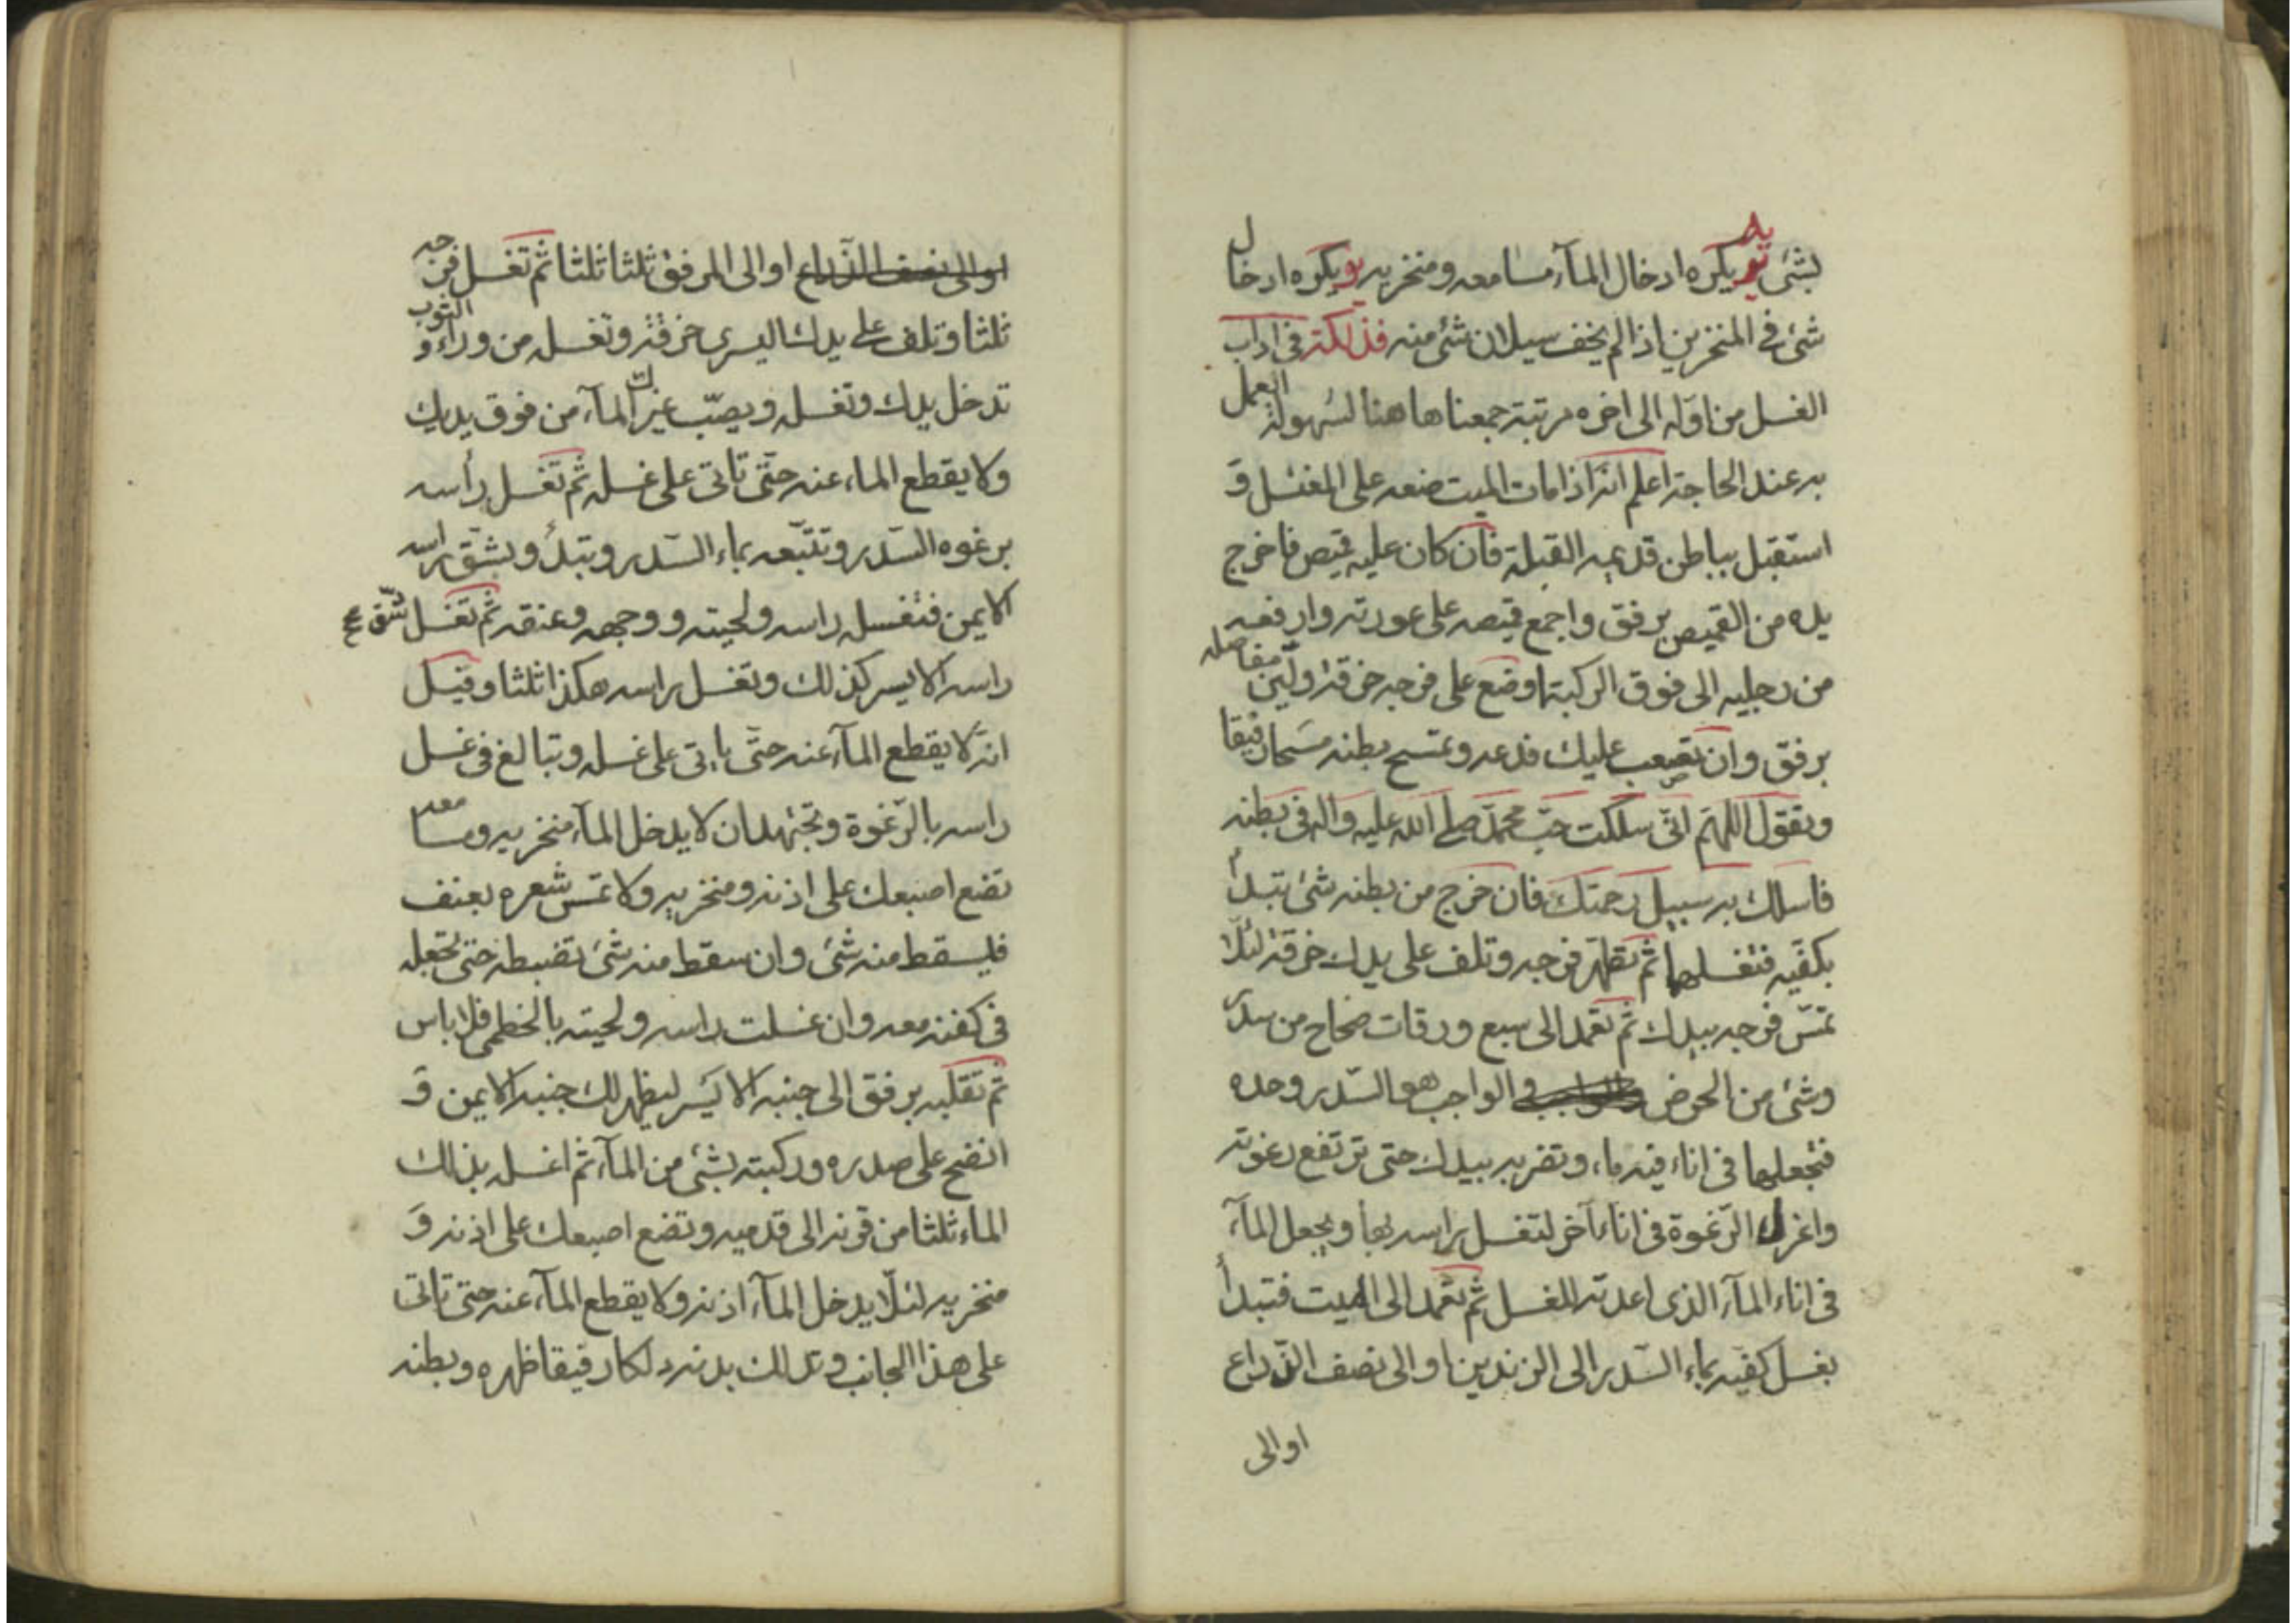 بشئ يد يكره ادخال المآء مسامعه ومنخريه يو يكره ادخال
شئ في المنخرين اذا لم يخف سيلان شئ منه فذلكة في اداب
الغسل من اوله الى اخره مرتبة جمعناها هنا لسهولة العمل
به عند الحاجة اعلم انه اذا مات الميت ضعه على المغتسل وَ
استقبل بباطن قدميه القبلة فان كان عليه قميص فاخرج
يده من القميص برفق واجمع قميصه على عورته وارفعه
من رجليه الى فوق الركبة وضع على فرجه خرقة وليّن مفاصله
برفق وان تصعب عليك فدعه وتمسح بطنه مسحا رفيقا
وتقول اللهم انّى سلكت حبّ محمّد صلى الله عليه واله في بطنه
فاسلك به سبيل رحمتك فان خرج من بطنه شئ تبدأ
بكفّيه فتغسلهما ثم تطهّر فرجه وتلف على يدك خرقة لئلّا
تمسّ فرجه بيدك ثم تعمد الى سبع ورقات صحاح من سدر
وشئ من الحرض والواجب هو السّدر وحده
فتجعلهما في اناء فيه ماء، وتضربه بيدك حتى ترتفع رغوته
واغرف الرّغوة في اناء آخر لتغسل راسه بها ويجعل المآء
في اناء المآء الذى اعدته للغسل ثم تعمد الى الميت فتبدأ
بغسل كفيه بماء السّدر الى الزندين او الى نصف الذّراع
او الى
او الى نصف الذّراع او الى المرفق ثلثا ثلثا ثم تغسل فرجه
ثلثا وتلف على يدك اليسرى خرقة وتغسله من وراء الثوب و
تدخل يدك وتغسله ويصبّ غيرك المآء من فوق يديك
ولا يقطع الماء عنه حتّى تاتى على غسله ثم تغسل رأسه
برغوه السّدر وتتبعه بماء السّدر وتبدأ وبشق راسه
الايمن فتغسل راسه ولحيته ووجهه وعنقه ثم تغسل شق
راسه الايسر كذلك وتغسل راسه هكذا ثلثا وقيل
انه لا يقطع المآء عنه حتّى ياتى على غسله وتبالغ في غسل
راسه بالرّغوة وتجتهد ان لا يدخل المآء منخريه ومسامعه
تضع اصبعك على اذنه ومنخريه ولا تمسّ شعره بعنف
فليسقط منه شئ وان سقط منه شئ تضبطه حتى تجعله
في كفنه معه وان غسلت راسه ولحيته بالخطمى فلا باس
ثم تقلبه برفق الى جنبه الايسر ليظهر لك جنبه الايمن وَ
انضح على صدره وركبته بشئ من المآء ثم اغسله بذلك
الماء ثلثا من قرنه الى قدميه وتضع اصبعك على اذنه وَ
منخريه لئلّا يدخل المآء اذنه ولا يقطع المآء عنه حتى تاتى
على هذا الجانب وتدلك بدنه دلكا رفيقا ظهره وبطنه